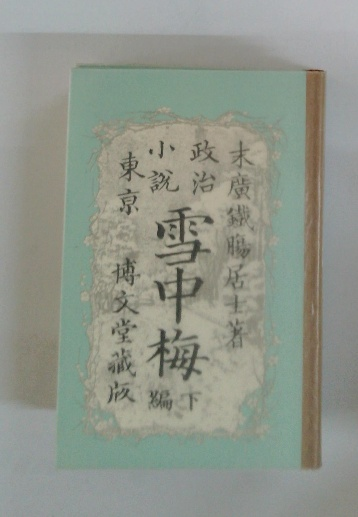 末廣鐵腸居士著
政治
小説
雪中梅
下編
東京 博文堂藏版